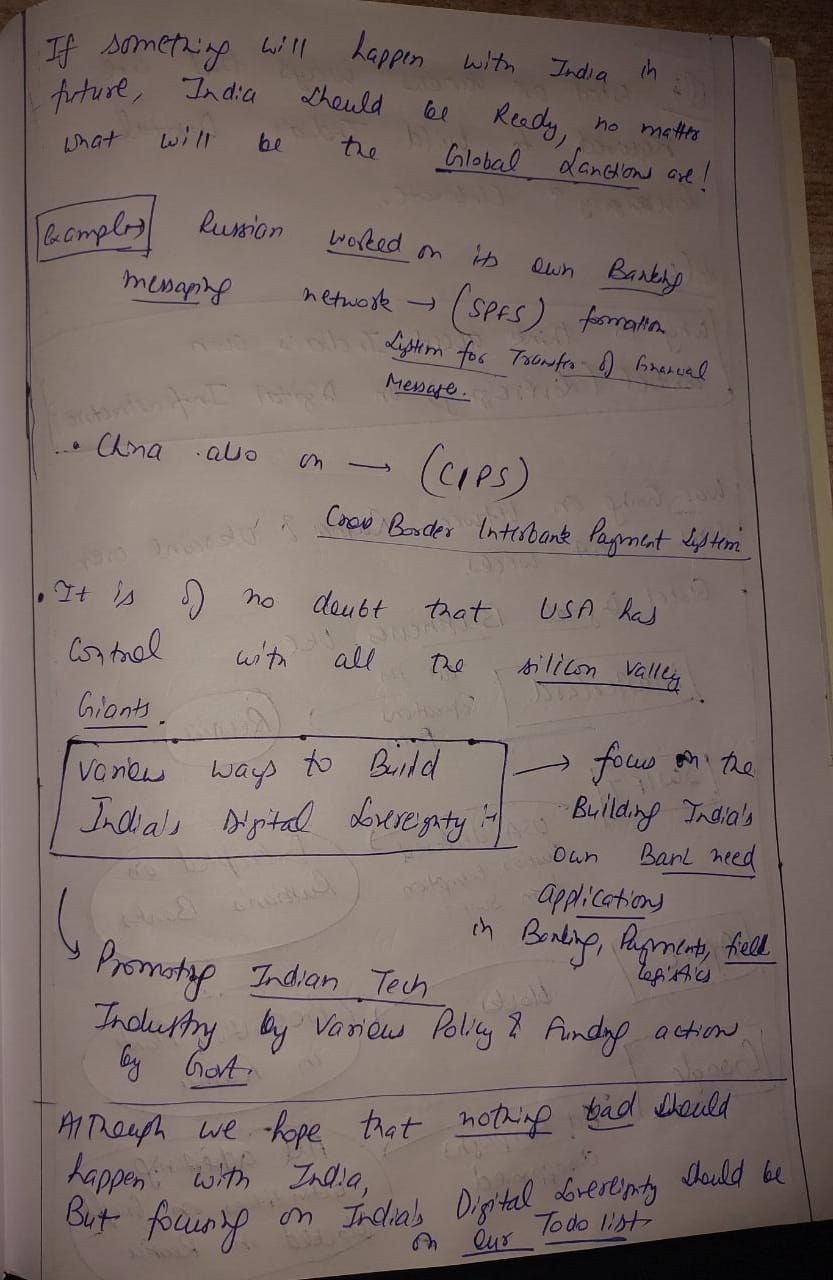 If something will happen with India in
future, India should be Ready, no matter
what will be the Global Sanctions are!
Examples Russian worked on its own Banking
messaging network → (SPFS) formation
System for Transfer of Financial
Message.
• China also on → (CIPS)
Cross Border Interbank Payment System
• It is of no doubt that USA has
Control with all the silicon valley
Giants.
Various ways to Build → focus on the
India's Digital Sovereignty is Building India's
own need
applications
in Banking, Payments, field
logistics
Promoting Indian Tech
Industry by Various Policy & Funding action
by Govt.
Although we hope that nothing bad should
happen with India,
But focusing on India's Digital Sovereignty should be
on our Todo list